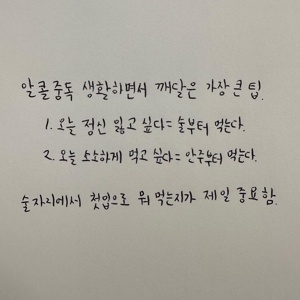 알콜중독 생활하면서 깨달은 가장 큰 팁.
1. 오늘 정신 잃고 싶다 = 술부터 먹는다.
2. 오늘 소소하게 먹고 싶다 = 안주부터 먹는다.
술자리에서 첫입으로 뭐 먹는지가 제일 중요함.